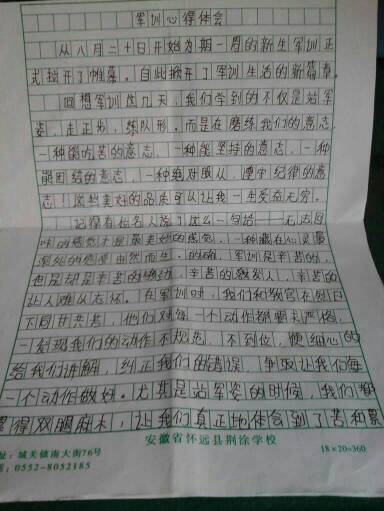 军训心得体会
从八月二十日开始为期一周的新生军训正
式拉开了帷幕。自此掀开了军训生活的新篇章。
回想军训这几天，我们学到的不仅是站军
姿，走正步，练队形。而是在磨练我们的意志，
一种能吃苦的意志，一种能坚持的意志，一种
能团结的意志，一种绝对服从，遵守纪律的意
志！这些美好的品质可以让我一生受益无穷。
记得有位名人说了这么一句话——无法回
味的感觉才是最美妙的感觉，一种藏在心灵最
深处的感受由然而生。的确，军训是辛苦的，
但是却是辛苦的
辛苦的
让人难以忘怀。在军训时，我们和教官在烈日
下同甘共苦，他们对每一个动作都要求严格，
一发现我们的动作不规范、不到位，便细心的
给我们讲解，纠正我们的错误，争取让我们每
一个动作做好。尤其是站军姿的时候，我们都
累得双腿麻木，让我们真正地体会到了苦和累
安徽省怀远县荆涂学校
18×20=360
址：城关镇南大街76号
话：0552-8052185